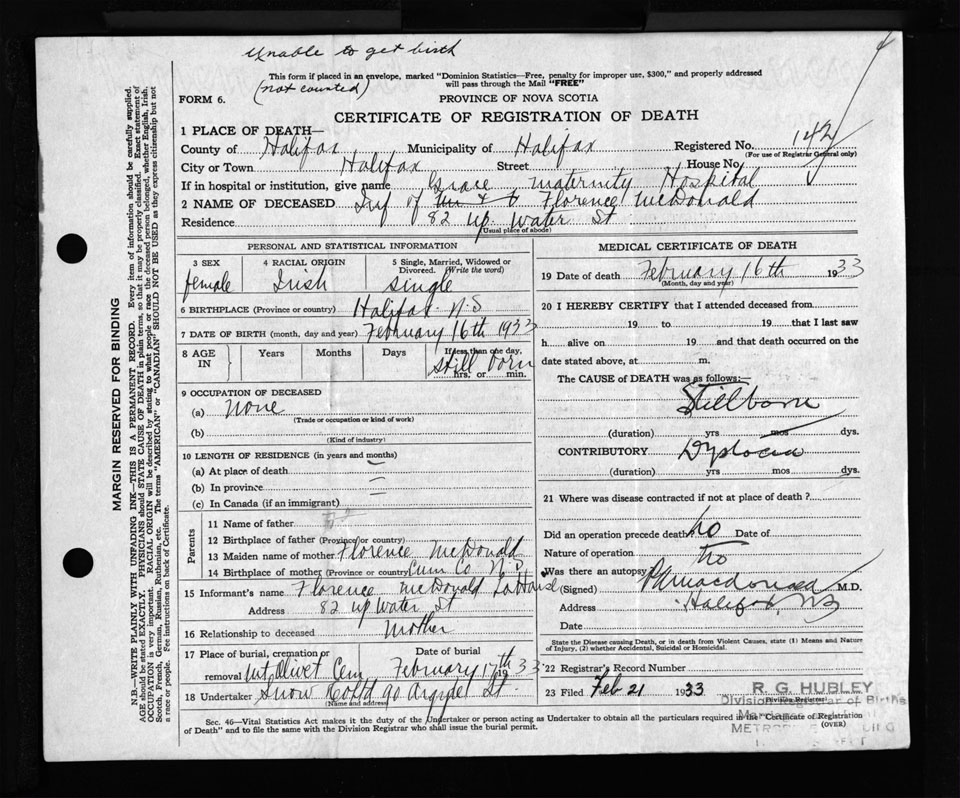 Unable to get birth
This form if placed in an envelope, marked "Dominion Statistics—Free, penalty for improper use, $300," and properly addressed
will pass through the Mail "FREE"
(not counted)
FORM 6.
PROVINCE OF NOVA SCOTIA
CERTIFICATE OF REGISTRATION OF DEATH
1 PLACE OF DEATH—
County of Halifax Municipality of Halifax Registered No.
(For use of Registrar General only)
City or Town Halifax Street House No.
If in hospital or institution, give name Grace maternity Hospital
2 NAME OF DECEASED Inf of Florence McDonald
Residence 82 up. Water St
(Usual place of abode)
PERSONAL AND STATISTICAL INFORMATION
3 SEX 4 RACIAL ORIGIN 5 Single, Married, Widowed or
Divorced. (Write the word)
female Irish single
6 BIRTHPLACE (Province or country) Halifax N.S
7 DATE OF BIRTH (month, day and year) February 16th 1933
8 AGE IN Years Months Days If less than one day,
Still born
hrs. or min.
9 OCCUPATION OF DECEASED
(a) None
(Trade or occupation or kind of work)
(b)
(Kind of industry)
10 LENGTH OF RESIDENCE (in years and months)
(a) At place of death
(b) In province
(c) In Canada (if an immigrant)
Parents
11 Name of father
12 Birthplace of father (Province or country)
13 Maiden name of mother Florence McDonald
14 Birthplace of mother (Province or country) Cum Co N.S
15 Informant's name Florence McDonald
Address 82 up Water St
16 Relationship to deceased Mother
17 Place of burial, cremation or Date of burial
removal Mt Olivet Cem February 17th 1933
18 Undertaker Snow Co Ltd 90 Argyle St
(Name and address)
MEDICAL CERTIFICATE OF DEATH
19 Date of death February 16th 1933
(Month, day and year)
20 I HEREBY CERTIFY that I attended deceased from
19 to 19 that I last saw
h alive on 19 and that death occurred on the
date stated above, at m.
The CAUSE OF DEATH was as follows:—
Stillborn
(duration) yrs mos dys.
CONTRIBUTORY Dystocia
(duration) yrs mos dys.
21 Where was disease contracted if not at place of death ?
Did an operation precede death? no Date of
Nature of operation
Was there an autopsy no
(Signed) Macdonald M.D.
Address Halifax, NS
Date
State the Disease causing Death, or in death from Violent Causes, state (1) Means and Nature
of Injury, (2) whether Accidental, Suicidal or Homicidal.
22 Registrar's Record Number
23 Filed Feb 21 1933
(Division Registrar)
R. G. HUBLEY
Division Registrar of Births
Sec. 46—Vital Statistics Act makes it the duty of the Undertaker or person acting as Undertaker to obtain all the particulars required in the "Certificate of Registration
of Death" and to file the same with the Division Registrar who shall issue the burial permit.
(OVER)
MARGIN RESERVED FOR BINDING
N.B.—WRITE PLAINLY WITH UNFADING INK—THIS IS A PERMANENT RECORD. Every item of information should be carefully supplied.
AGE should be stated EXACTLY. PHYSICIANS should STATE CAUSE OF DEATH in plain terms, so that it may be properly classified. Exact statement of
OCCUPATION is very important. RACIAL ORIGIN will be described by stating to what people or race the deceased person belonged, whether English, Irish,
Scotch, French, German, Russian, Ruthenian, etc. The terms "AMERICAN" or "CANADIAN" SHOULD NOT BE USED as they express citizenship but not
a race or people. See instructions on back of Certificate.